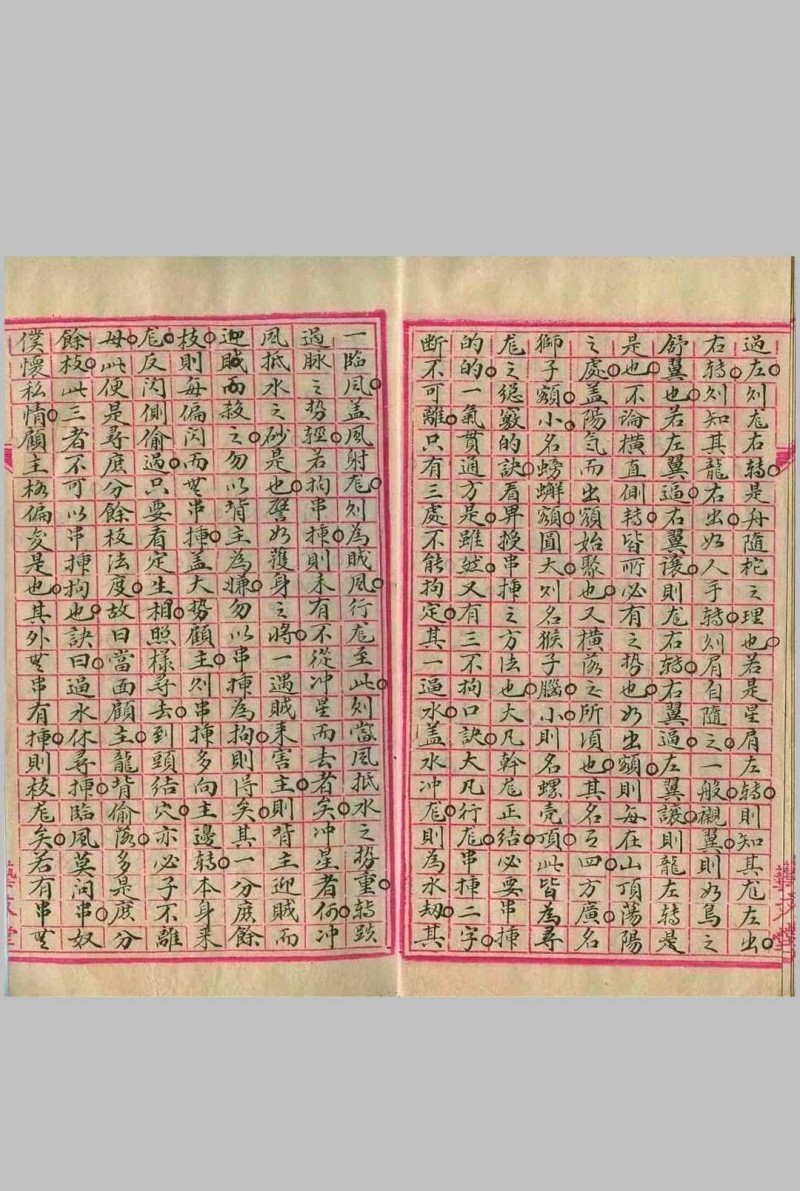 過左則龙右轉是舟隨柁之理也若是星肩左轉則知其龙左出
右轉則知其龍右出如人手轉則肩自隨之一般襯翼則如鳥之
舒翼也若左翼逼右翼讓則龙右轉右翼逼左翼讓則龍左轉是
是也不論橫直側轉皆所必有之勢也如出額則每在山頂蕩陽
之處盖陽气而出額始聚也又橫落之所項也其名曰四方廣名
獅子額小名螃蠏額圓大則名猴子腦小則名螺壳頂此皆為尋
龙之總竅的訣看畀授串揷之方法也大凡幹龙正結必要串揷
的的一氣貫通方是雖然又有三不拘口訣大凡行龙串揷二字
断不可離只有三處不能拘定其一過水盖水冲龙則為水劫其
一臨風盖風射龙則為賊風行龙至此則當風抵水之势重轉跌
過脉之势輕若拘串揷則未有不從冲星而去者矣冲星者何冲
風抵水之砂是也譬如護身之將一遇賊來害主則背主迎賊而
迎賊而救之勿以背主為嫌勿以串揷為拘則得矣其一分庶餘
枝則每偏闪而無串揷盖大势顧主則串揷多向主邊轉本身来
龙反闪側偷過只要看定生相照樣尋去到頭結穴亦必子不離
母此便是尋庶分餘枝法度故曰當面顧主龍背偷落多是庶分
餘枝此三者不可以串揷拘也訣曰過水休尋揷臨風莫问串奴
僕懷私情顧主核偏是也其外無串有揷則枝龙矣若有串無